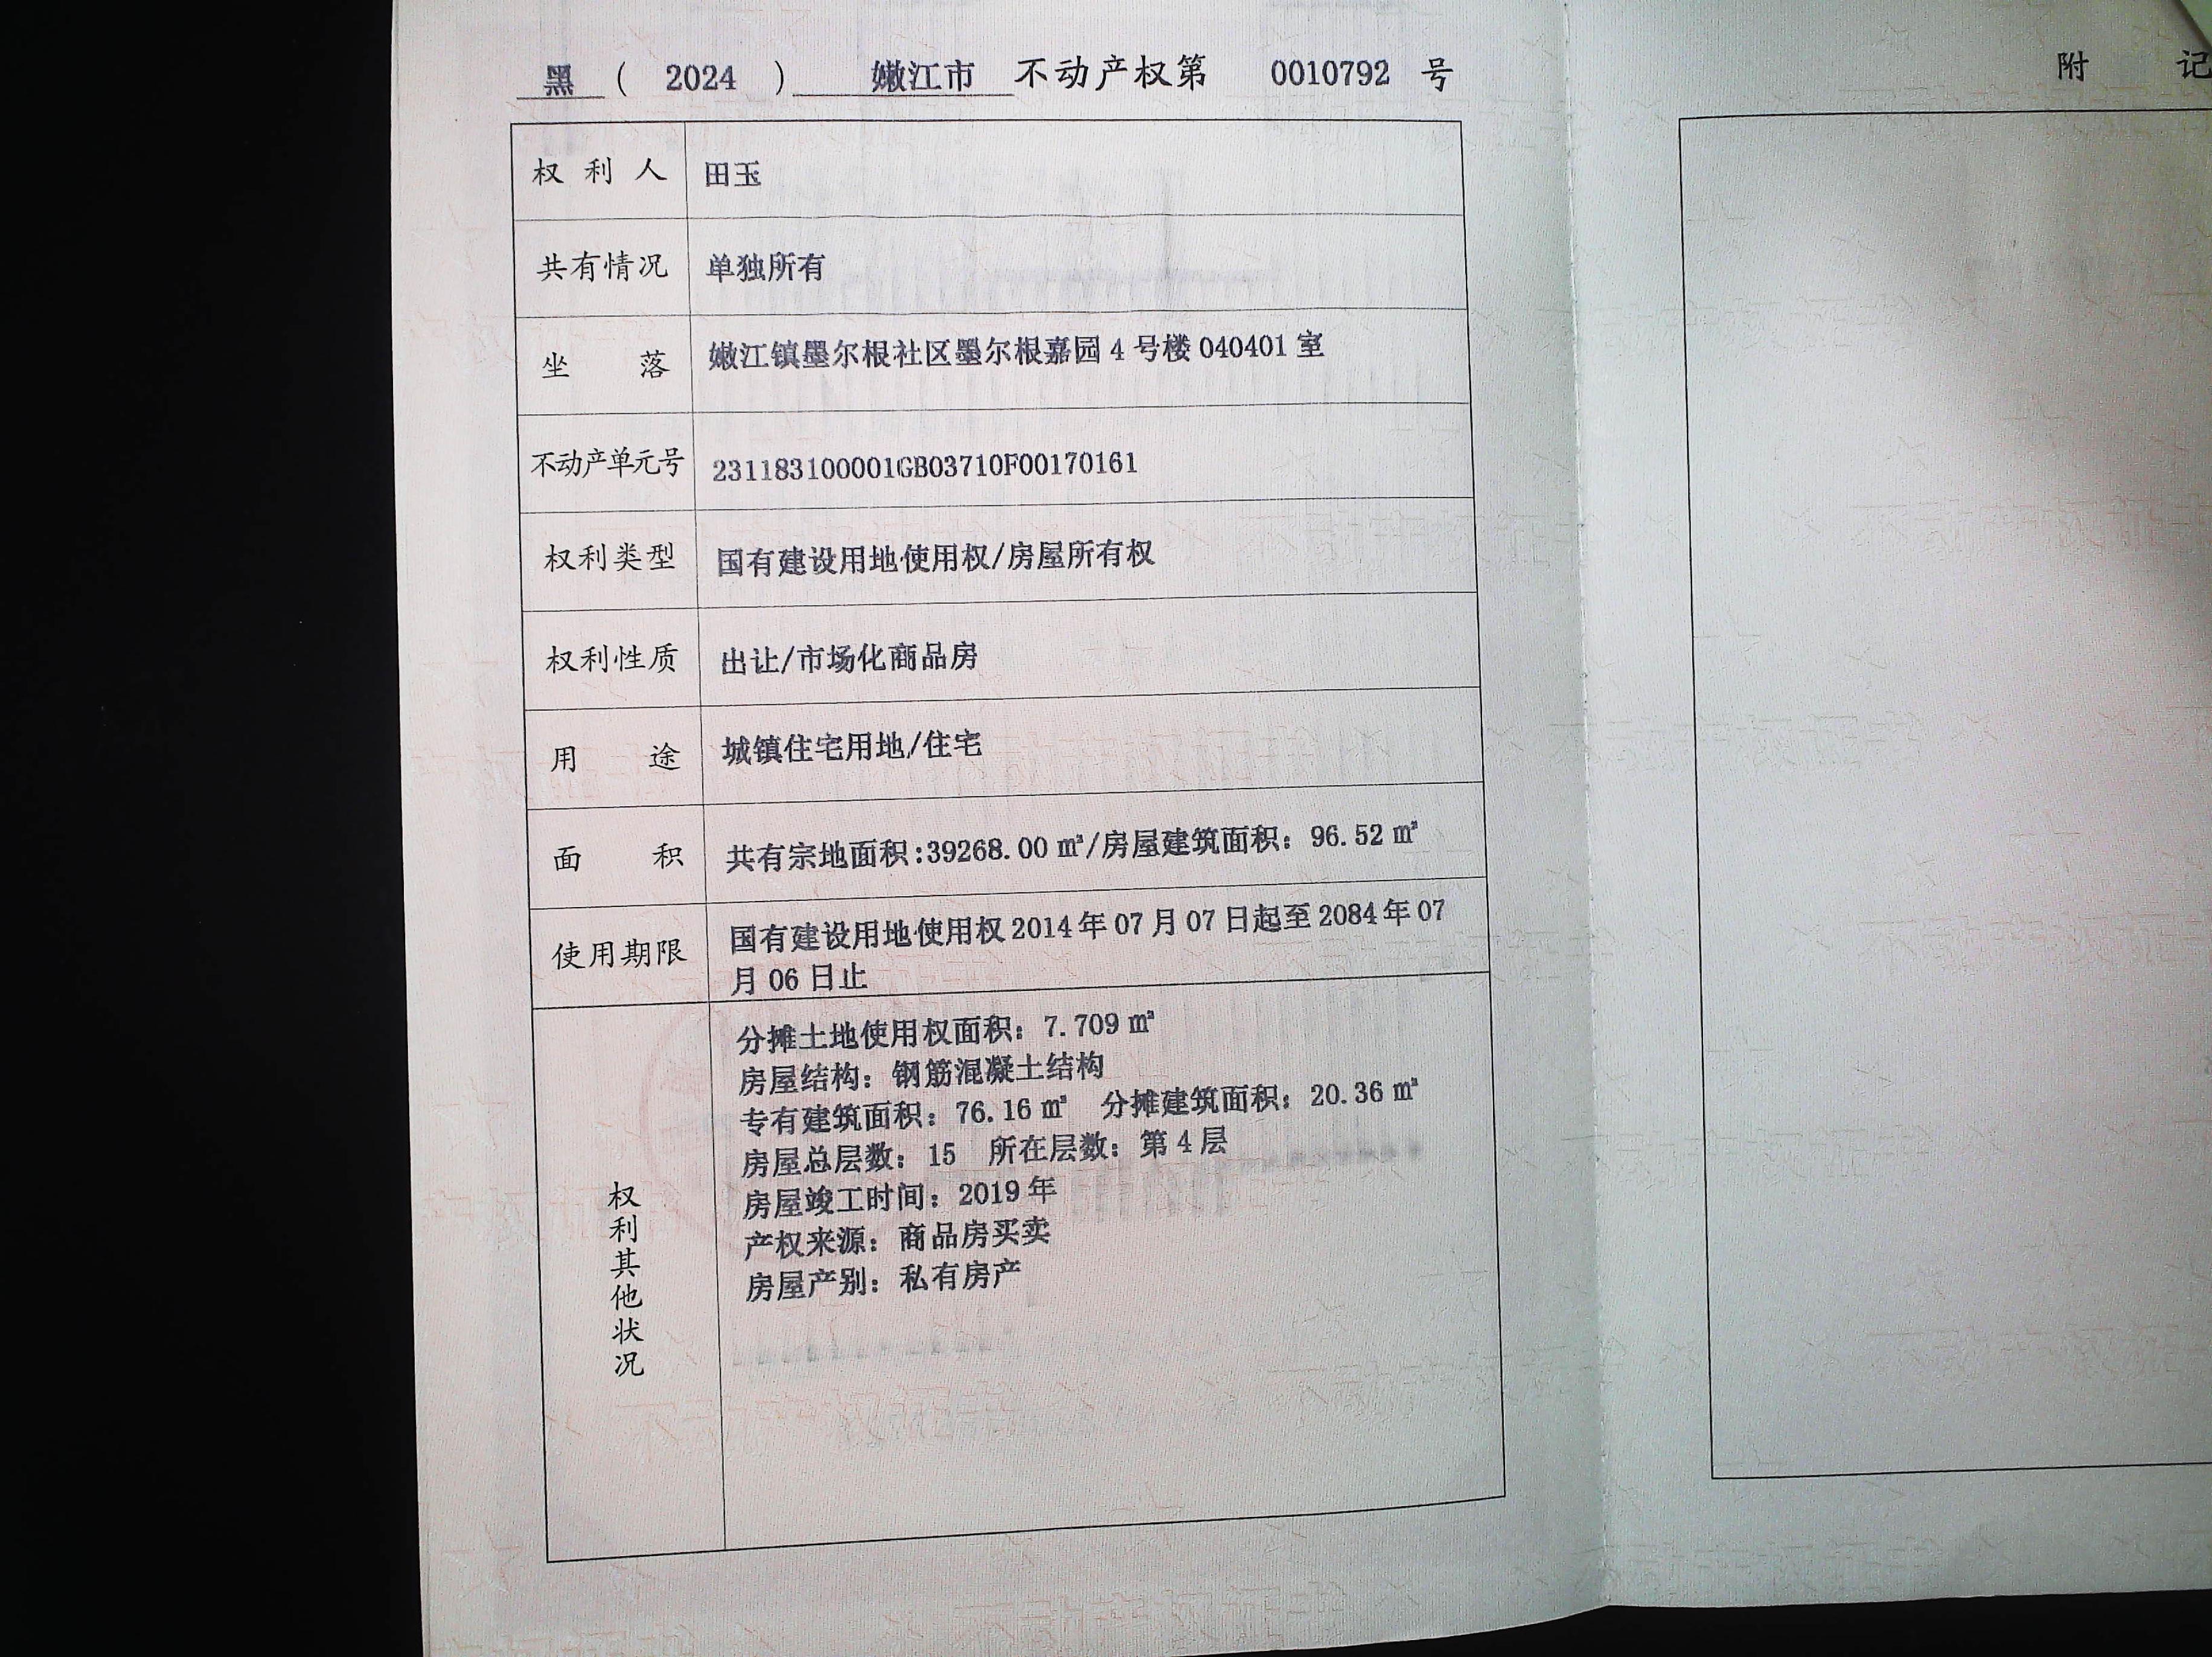 黑 ( 2024 ) 嫩江市 不动产权第 0010792 号
权利人 田玉
共有情况 单独所有
坐落 嫩江镇墨尔根社区墨尔根嘉园 4 号楼 040401 室
不动产单元号 231183100001GB03710F00170161
权利类型 国有建设用地使用权/房屋所有权
权利性质 出让/市场化商品房
用途 城镇住宅用地/住宅
面积 共有宗地面积:39268.00 ㎡/房屋建筑面积：96.52 ㎡
使用期限 国有建设用地使用权 2014 年 07 月 07 日起至 2084 年 07
月 06 日止
权利其他状况
分摊土地使用权面积：7.709 ㎡
房屋结构：钢筋混凝土结构
专有建筑面积：76.16 ㎡ 分摊建筑面积：20.36 ㎡
房屋总层数：15 所在层数：第 4 层
房屋竣工时间：2019 年
产权来源：商品房买卖
房屋产别：私有房产
附 记